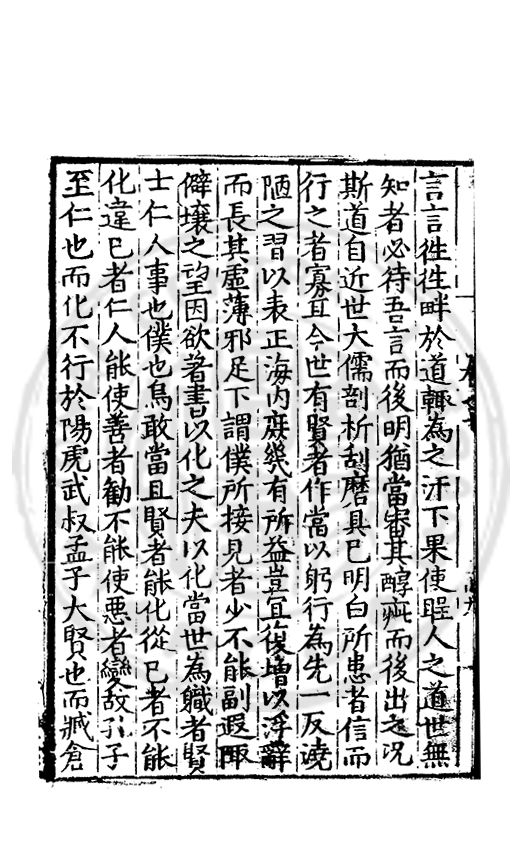 言言徃徃畔於道輙為之汗下果使聖人之道世無
知者必待吾言而後明猶當審其醇疵而後出之况
斯道自近世大儒剖析刮磨具已明白所患者信而
行之者寡耳今世有賢者作當以躬行為先一反澆
陋之習以表正海内庶幾有所益豈宜復增以浮辭
而長其虛薄邪足下謂僕所接見者少不能副遐陬
僻壤之望因欲著書以化之夫以化當世為職者賢
士仁人事也僕也烏敢當且賢者能化從已者不能
化違已者仁人能使善者勸不能使惡者變故孔子
至仁也而化不行於陽虎武叔孟子大賢也而臧倉